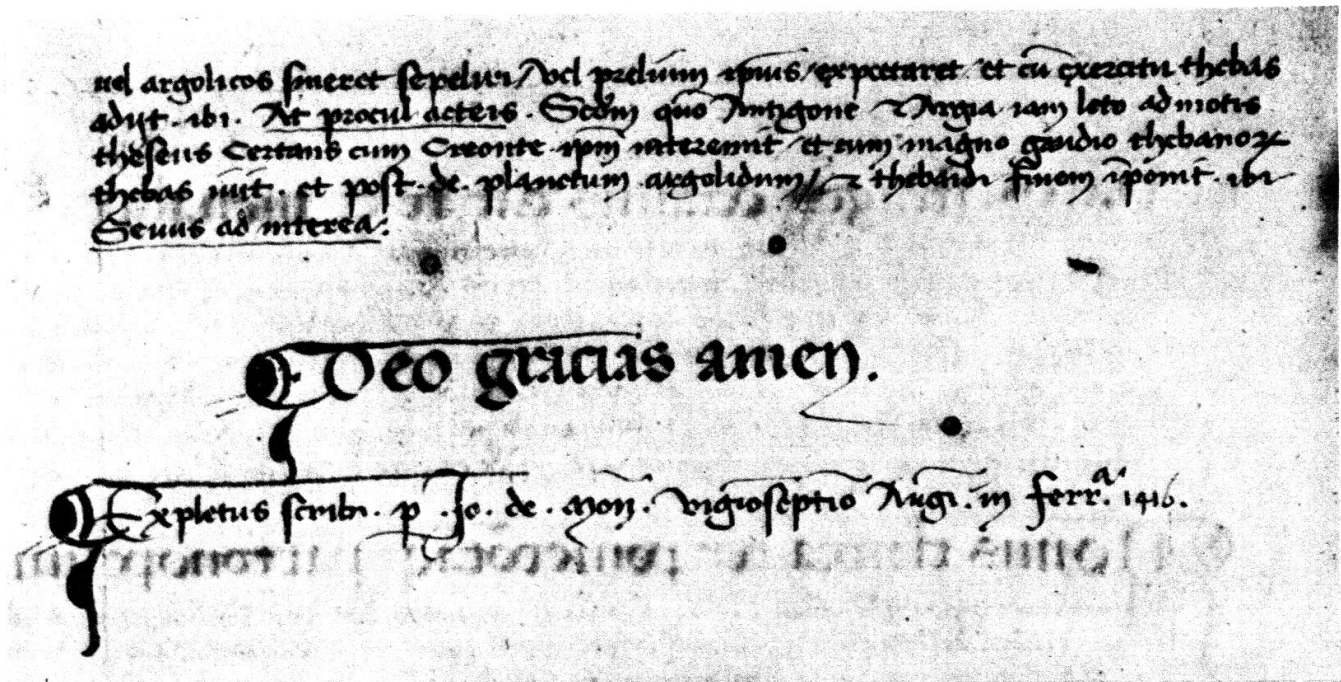 uel argolicos sineret sepeliri / Vel prelium ipius / expectaret et cū exercitu thebas
adijt . ibi . At procul acteis . Scdm quo Antigone ⁊ Argia iam leto admotis
theseus Certans cum Creonte ipm interemit et cum magno gaudio thebanoꝝ
thebas iuit . et post . de . planctum argolidum // ⁊ thebaidi finem īponit . ibi
Seuus ad interea .
Deo gracias amen .
Expletus scribi . p . Jo . de . Moñ . vigioseptio Augi . in ferr.ª 1416 .